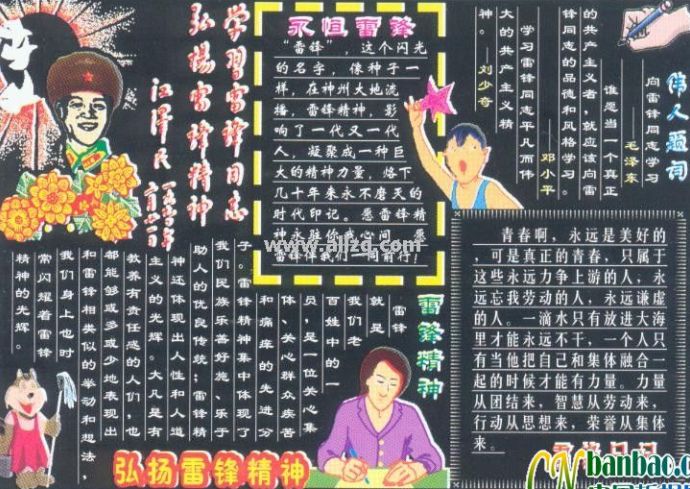 学習雷锋同志
弘揚雷锋精神
江泽民
永恒雷锋
“雷锋”，这个闪光
的名字，像种子一
样，在神州大地流
播，雷锋精神，影
响了一代又一代
人，凝聚成一种巨
大的精神力量，烙下
几十年来永不磨灭的
时代印记。愿雷锋精
神永驻你我心间，愿
雷锋伴我们一同前行！
伟人题词
向雷锋同志学习
——毛泽东
谁愿当一个真正
的共产主义者，就应该向雷
锋同志的品德和风格学习。
——邓小平
学习雷锋同志平凡而伟
大的共产主义精
神。——刘少奇
雷锋精神
雷锋
就是
我们老
百姓中的一
员，是一位关心集
体、关心群众疾苦
和痛痒的先进分
子。雷锋精神集中体现了
我们民族乐善好施、乐于
助人的优良传统；雷锋精
神还体现出人性和人道
主义的光辉。大凡是有
教养有责任感的人们，也
都能够或多或少地表现出
和雷锋相类似的举动和想法，
我们身上也时
常闪耀着雷锋
精神的光辉。
弘扬雷锋精神
青春啊，永远是美好的
，可是真正的青春，只属于
这些永远力争上游的人，永
远忘我劳动的人，永远谦虚
的人。一滴水只有放进大海
里才能永远不干，一个人只
有当他把自己和集体融合一
起的时候才能有力量。力量
从团结来，智慧从劳动来，
行动从思想来，荣誉从集体
来。
www.allzq.com
banbao.c